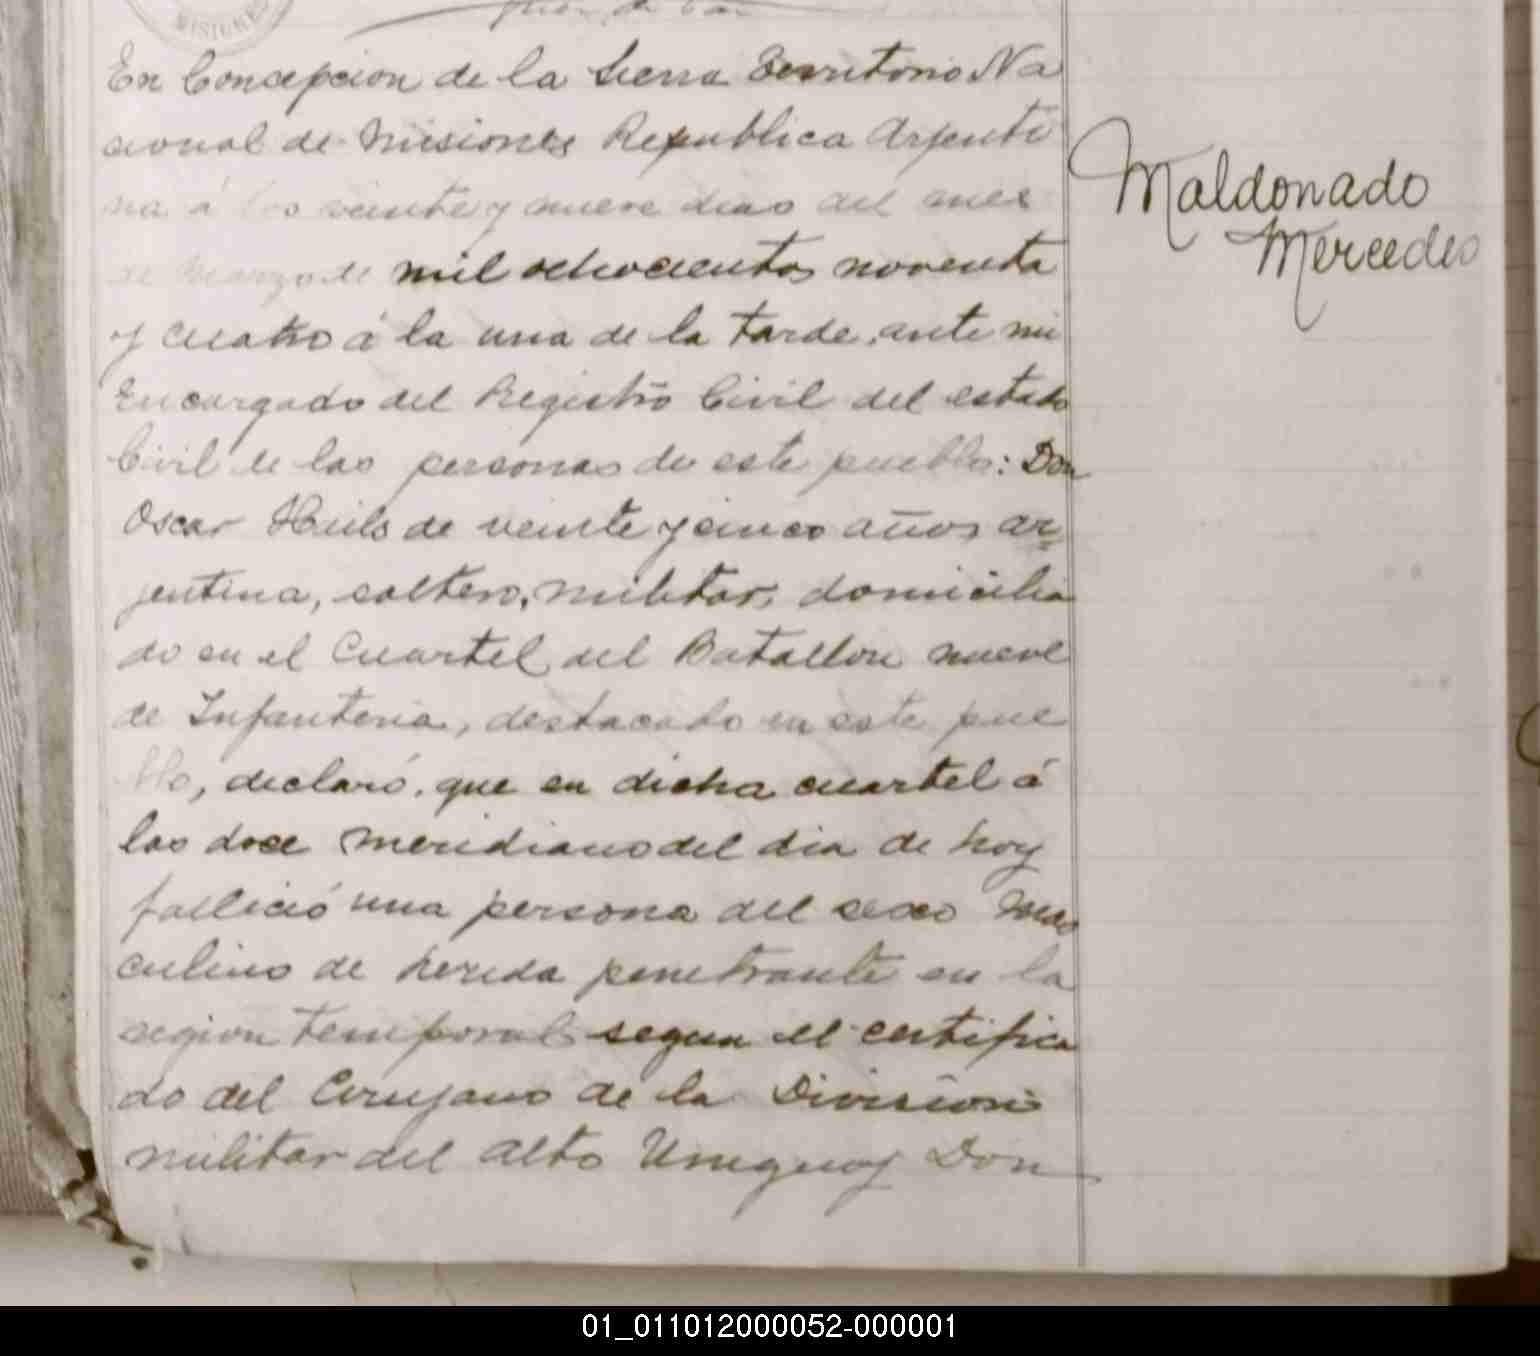 MISIONES
En Concepcion de la Sierra Territorio Na
cional de Misiones Republica Arjenti
na á los veinte y nueve dias del mes
de Marzo de mil ochocientos noventa
y cuatro á la una de la tarde, ante mi
Encargado del Registro Civil del estado
Civil de las personas de este pueblo: Don
Oscar de veinte y cinco años ar
jentina, soltero, militar, domicilia
do en el Cuartel del Batallon nueve
de Infanteria, destacado en este pue
blo, declaró, que en dicha cuartel á
las doce meridiano del dia de hoy
falleció una persona del sexo mas
culino de herida penetrante en la
region temporal segun el certifica
do del Cirujano de la Division
militar del alto Uruguay Don
Maldonado
Mercedes
01_011012000052-000001